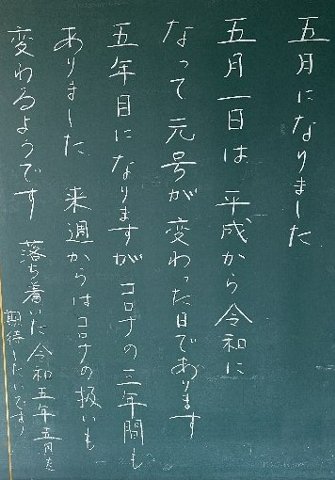 五月になりました
五月一日は 平成から令和に
なって 元号が変わった日であります
五年目になりますがコロナの三年間も
ありました 来週からはコロナの扱いも
変わるようです 落ち着いた令和五年五月を
期待したいです!